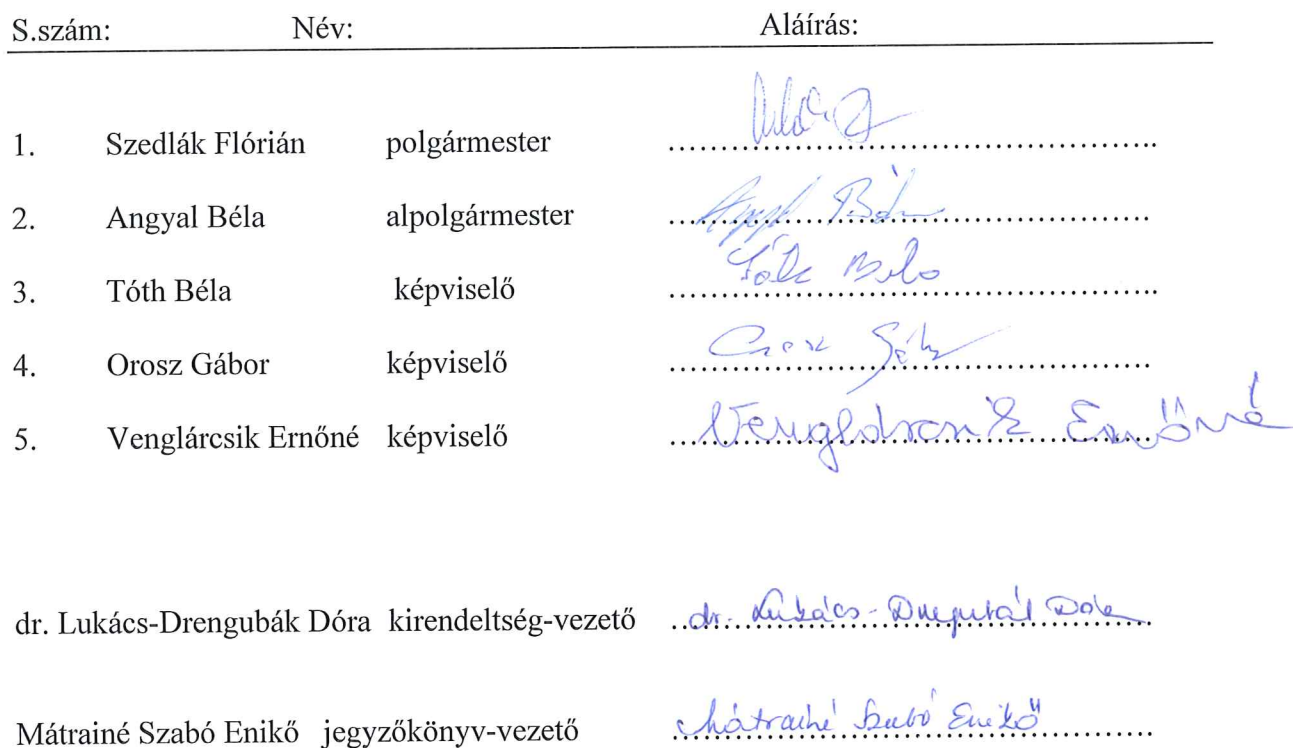 S.szám: Név: Aláírás:
1. Szedlák Flórián polgármester ..........
2. Angyal Béla alpolgármester Béla
3. Tóth Béla képviselő Tóth Béla
4. Orosz Gábor képviselő Orosz Gábor
5. Venglárcsik Ernőné képviselő Venglárcsik Ernőné
dr. Lukács-Drengubák Dóra kirendeltség-vezető dr. Lukács-Drengubák Dóra
Mátrainé Szabó Enikő jegyzőkönyv-vezető Mátrainé Szabó Enikő